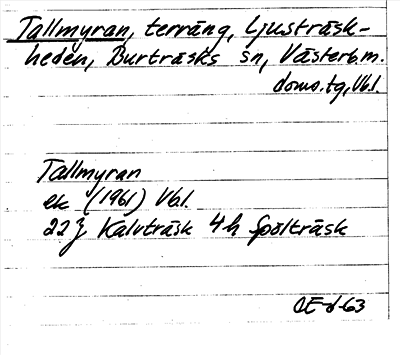 Tallmyran, terräng, Ljusträsk-
heden, Burträsks sn, Västerb.m.
doms.tg, Vbl.
Tallmyran
ek (1961) Vbl.
22J Kalvträsk 4h Spölträsk
OE-d-63